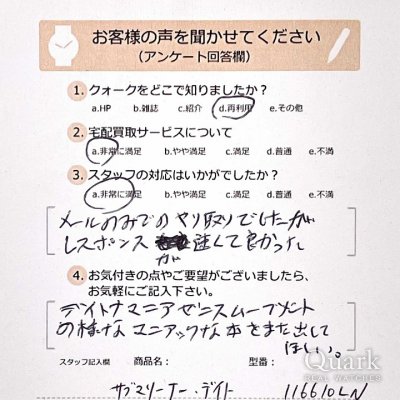 お客様の声を聞かせてください
(アンケート回答欄)
1. クォークをどこで知りましたか？
a.HP b.雑誌 c.紹介 d.再利用 e.その他
2. 宅配買取サービスについて
a.非常に満足 b.やや満足 c.満足 d.普通 e.不満
3. スタッフの対応はいかがでしたか？
a.非常に満足 b.やや満足 c.満足 d.普通 e.不満
メールのみでのやり取りでしたが
レスポンスが速くて良かった
4. お気付きの点やご要望がございましたら、
お気軽にご記入下さい。
デイトナマニア ゼニスムーブメント
の様なマニアックな本をまた出して
ほしい。
スタッフ記入欄 商品名： 型番：
サブマリーナー・デイト 116610LN
Quark
REAL WATCHES